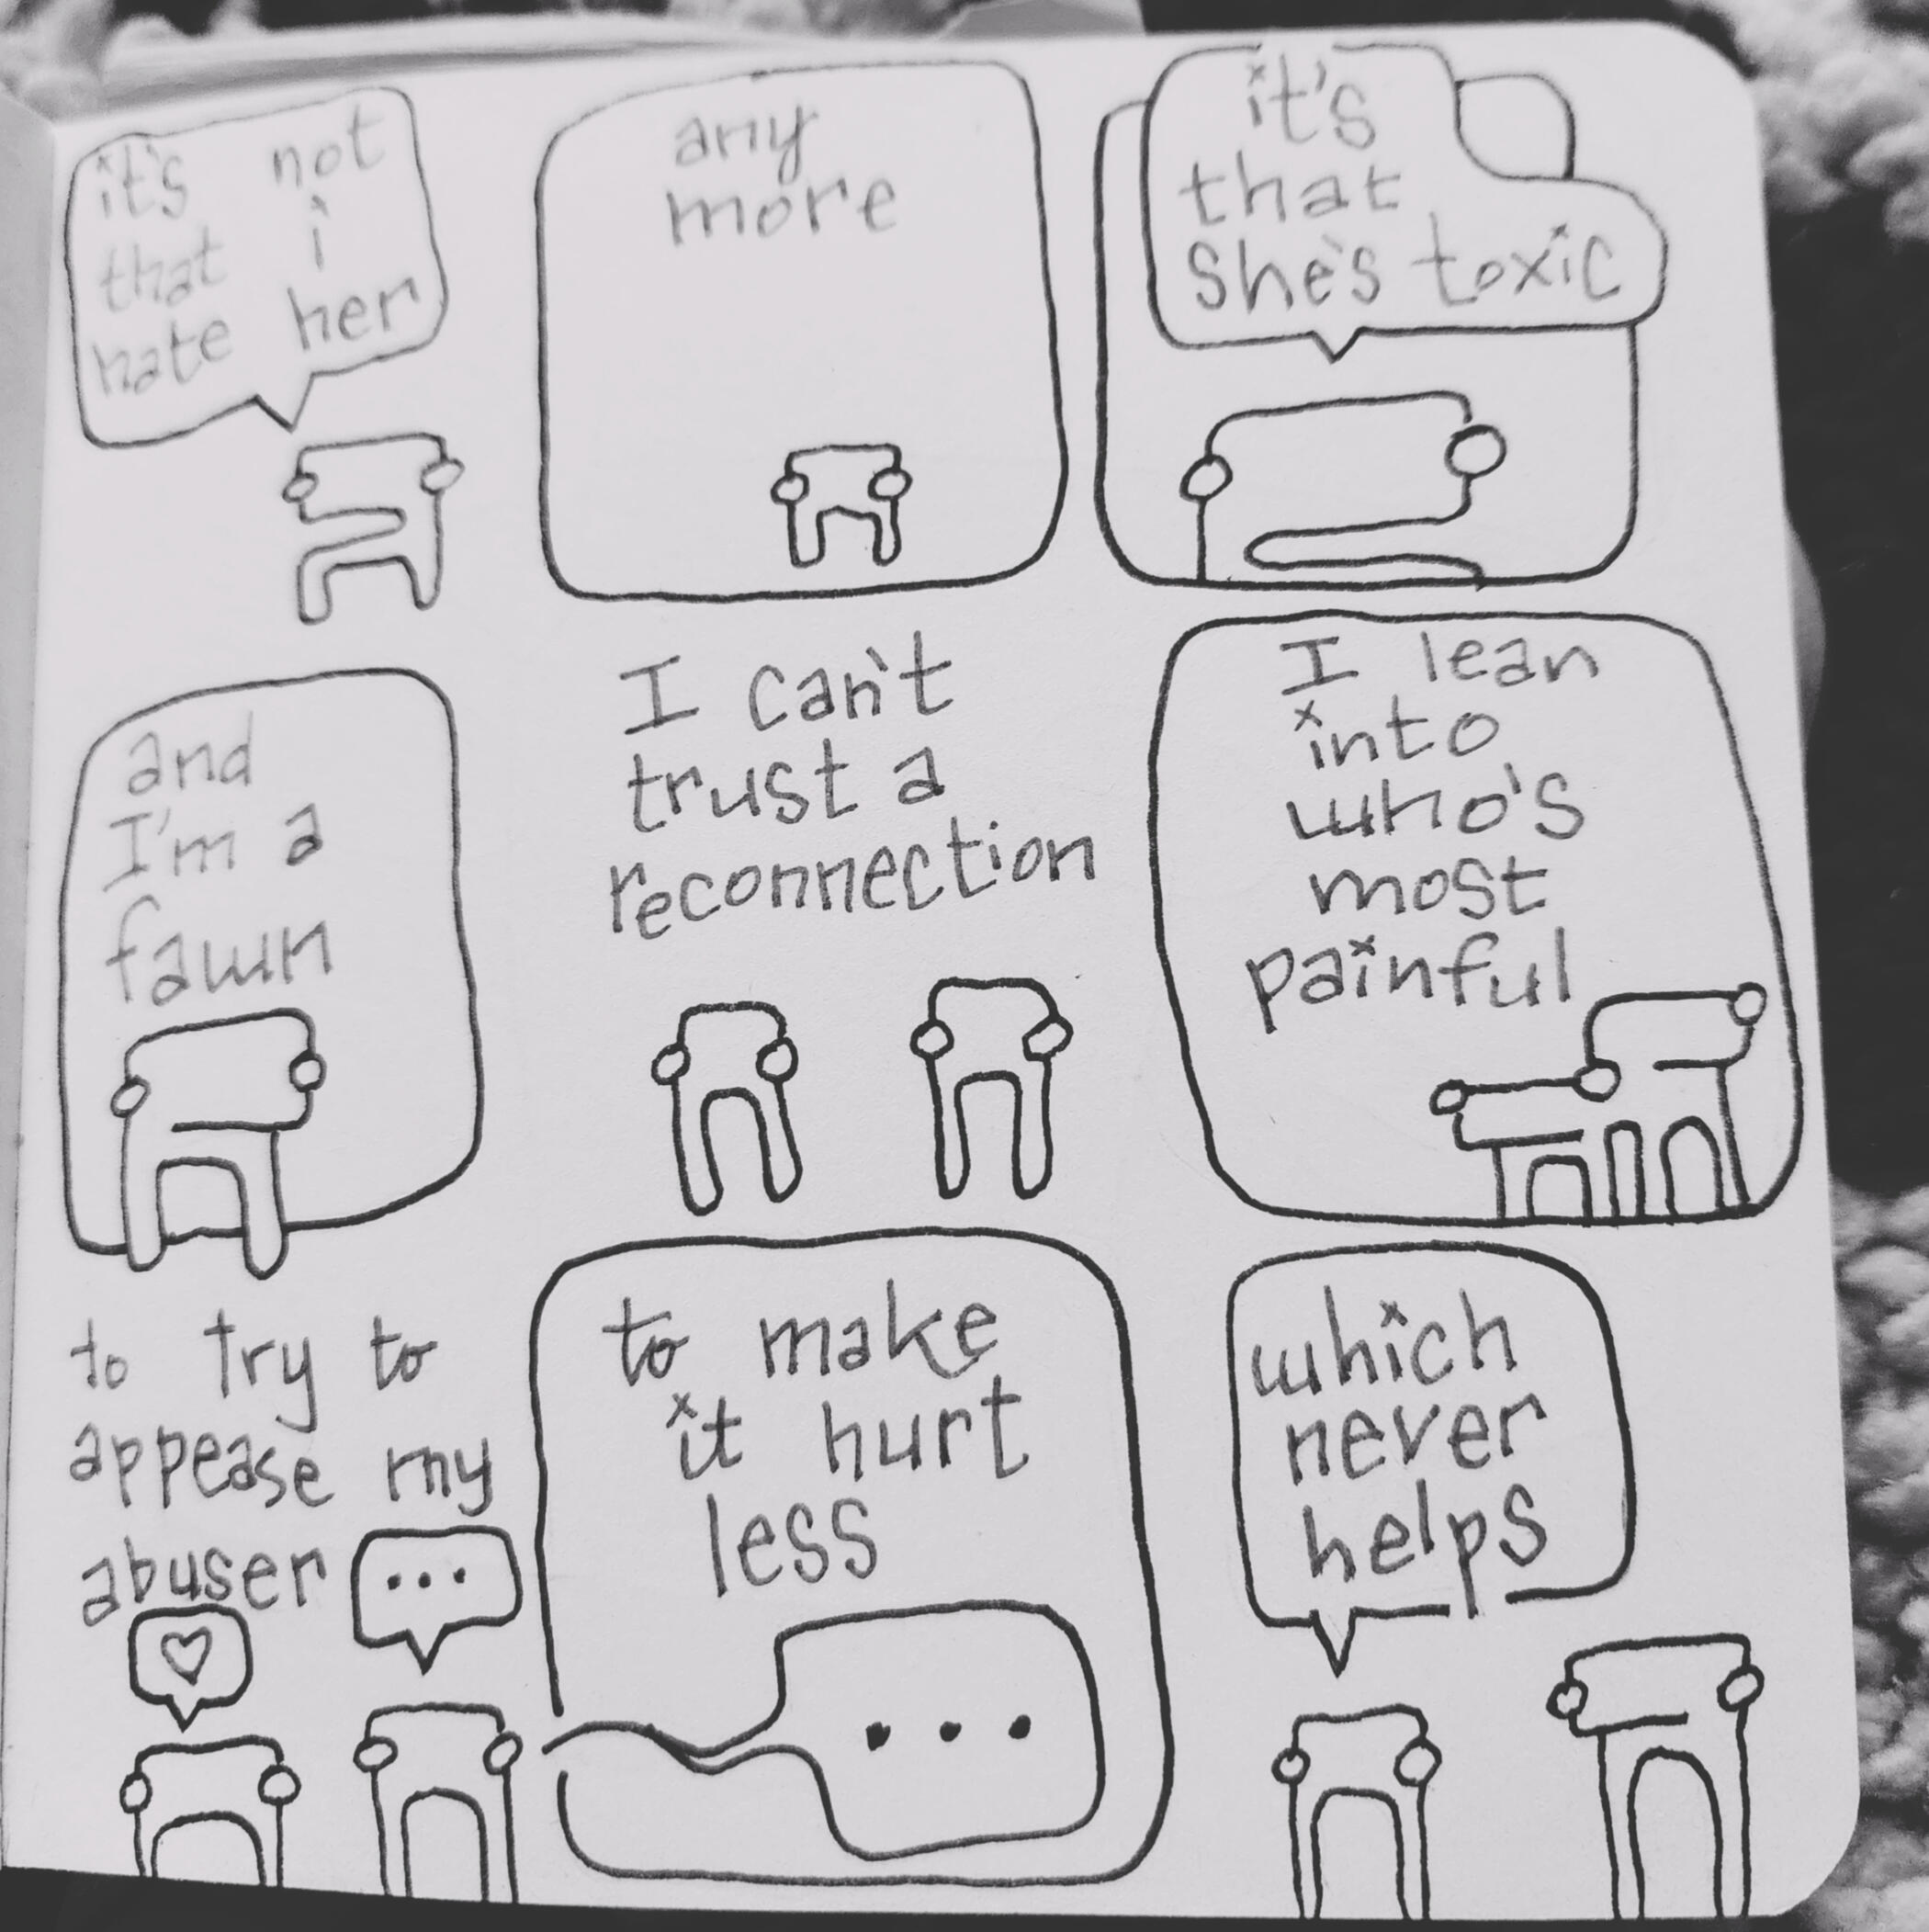 it's not
that i
hate her
any
more
it's
that
she's toxic
and
I'm a
fawn
I can't
trust a
reconnection
I lean
into
who's
most
painful
to try to
appease my
abuser
...
to make
it hurt
less
...
which
never
helps